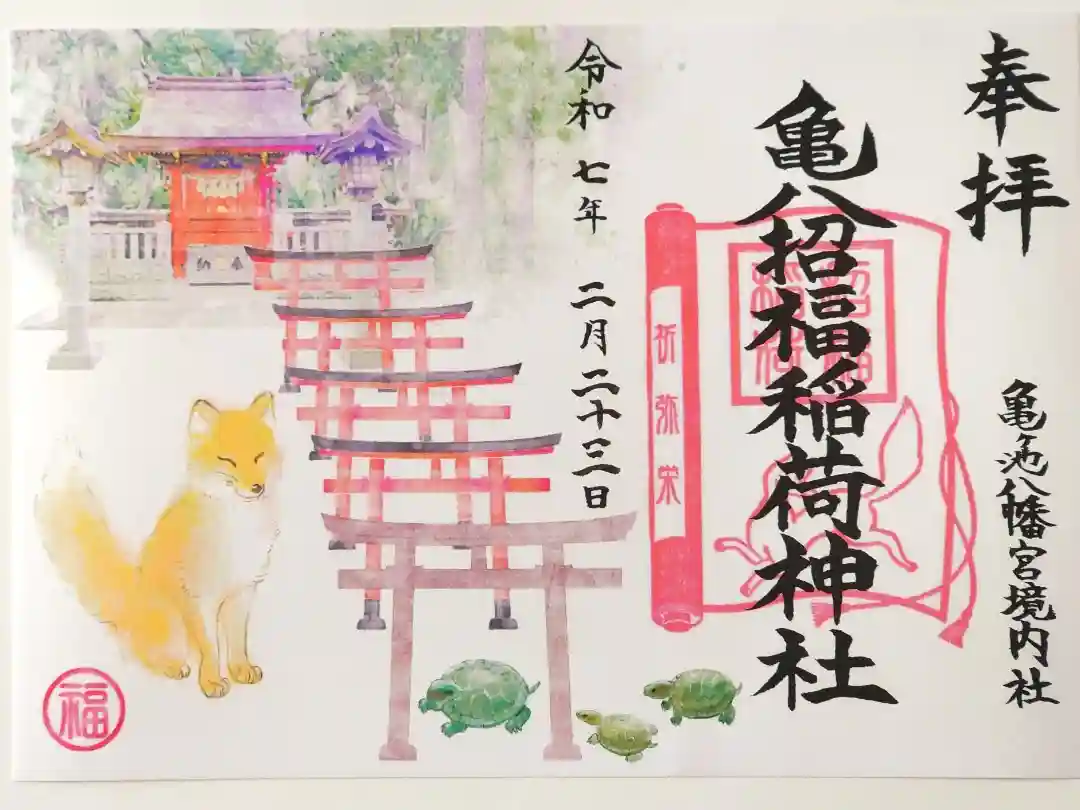 奉拝
亀ヶ池八幡宮境内社
亀八招福稲荷神社
招福
稲荷
祈弥栄
令和七年二月二十三日
納奉
福